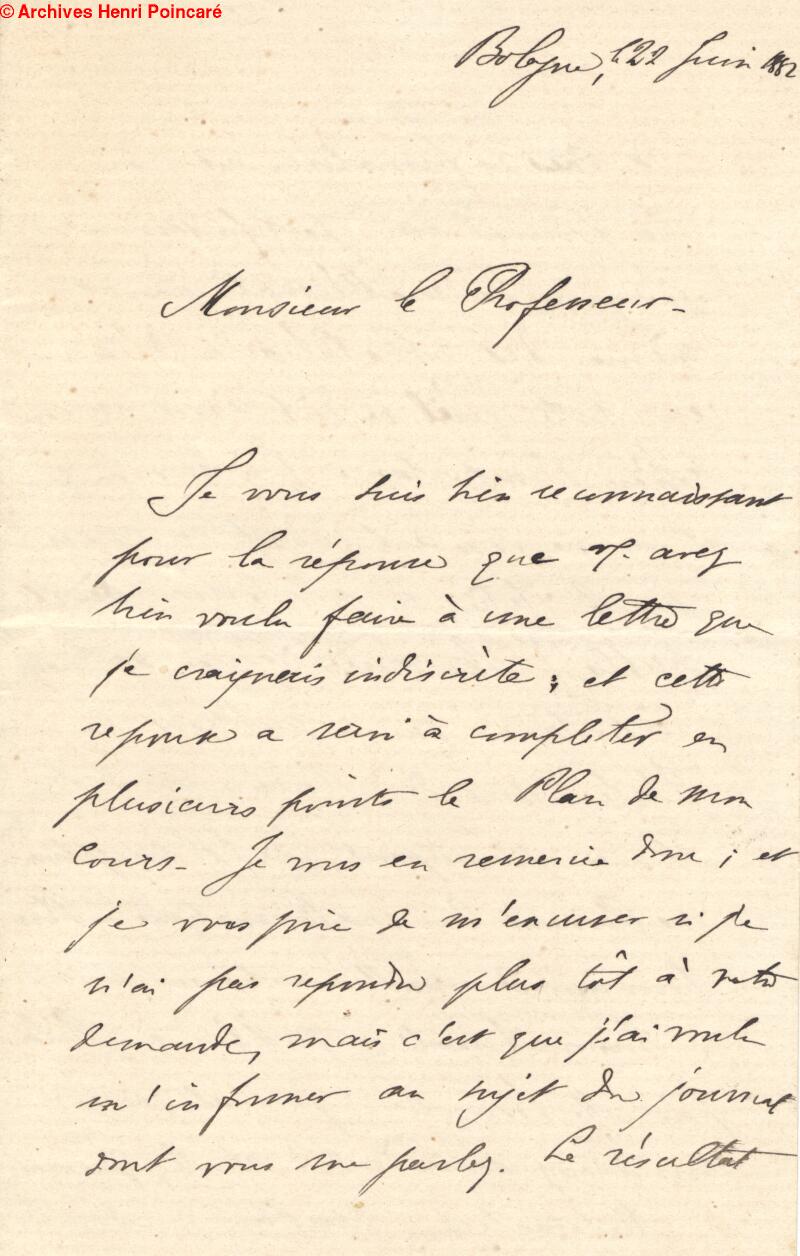 © Archives Henri Poincaré
Bologne, le 22 Juin 1882
Monsieur le Professeur –
Je vous suis bien reconnaissant
pour la réponse que V. avez
bien voulu faire à une lettre que
je craignais indiscrète ; et cette
reponse a servi à completer en
plusieurs points le Plan de mon
Cours – Je vous en remercie donc ; et
je vous prie de m'excuser si je
n'ai pas repondu plus tôt à votre
demande, mais c'est que j'ai voulu
m'informer au sujet du journal
dont vous me parlez. Le résultat